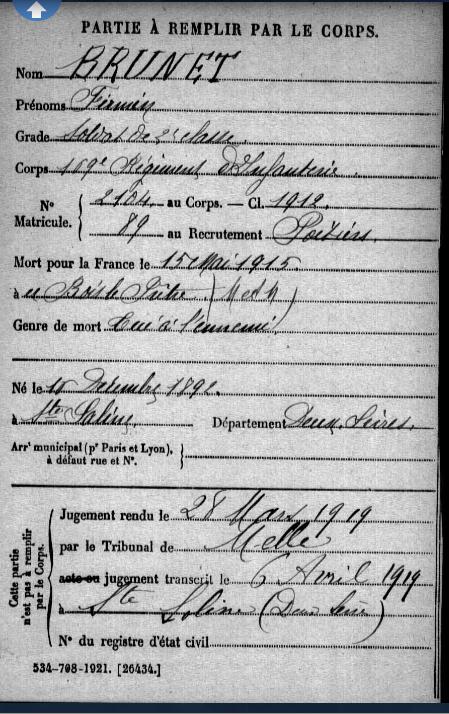 PARTIE À REMPLIR PAR LE CORPS.
Nom BRUNET
Prénoms Firmin
Grade Soldat de 2e classe
Corps 169e Régiment d'Infanterie
N° Matricule. { 2104 au Corps. — Cl. 1912.
89 au Recrutement Poitiers
Mort pour la France le 15 Mai 1915
à au Bois le Prêtre (M et M)
Genre de mort Tué à l'ennemi
Né le 10 Décembre 1892.
à Ste Soline Département Deux Sèvres.
Arrt municipal (pr Paris et Lyon), à défaut rue et N°. }
Cette partie n'est pas à remplir par le Corps. {
Jugement rendu le 28 Mars 1919
par le Tribunal de Melle
acte ou jugement transcrit le 6 Avril 1919
à Ste Soline (Deux Sèvres)
N° du registre d'état civil
534-708-1921. [26434.]